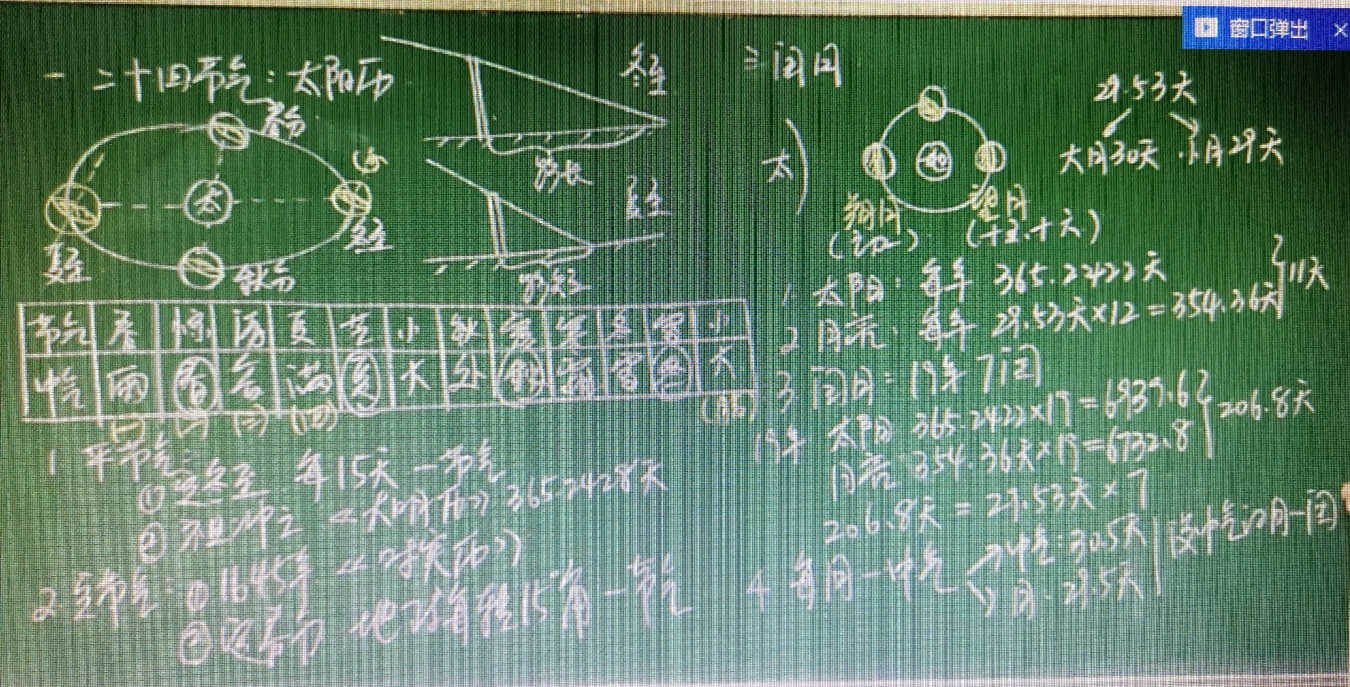 窗口弹出
一 二十四节气：太阳历
春分
太
夏至
冬至
秋分
冬至
影长
夏至
影短
节气 春 惊 清 夏 芒 小 秋 寒 冬 雪 小
中气 雨 春 谷 满 夏 大 处 秋 霜 雪 冬 大
(一) (二) (三) (四) (腊)
1. 平节气：
① 定冬至 每15天一节气
② 祖冲之 《大明历》 365.2428天
2. 定节气：① 1645年 《时宪历》
② 定春分 地球每转15角一节气
三 闰月
太
地
朔月
(初一)
望月
(十五、十六)
29.53天
大月30天 小月29天
1 太阳：每年 365.2422天
2 月亮：每年 29.53天×12=354.36天
11天
3 闰月：19年7闰
19年 太阳 365.2422×19=6939.6
月亮：354.36天×19=6732.8
206.8天
206.8天=29.53天×7
4 每月一中气
中气：30.5天
月：29.5天
没中气的月一闰